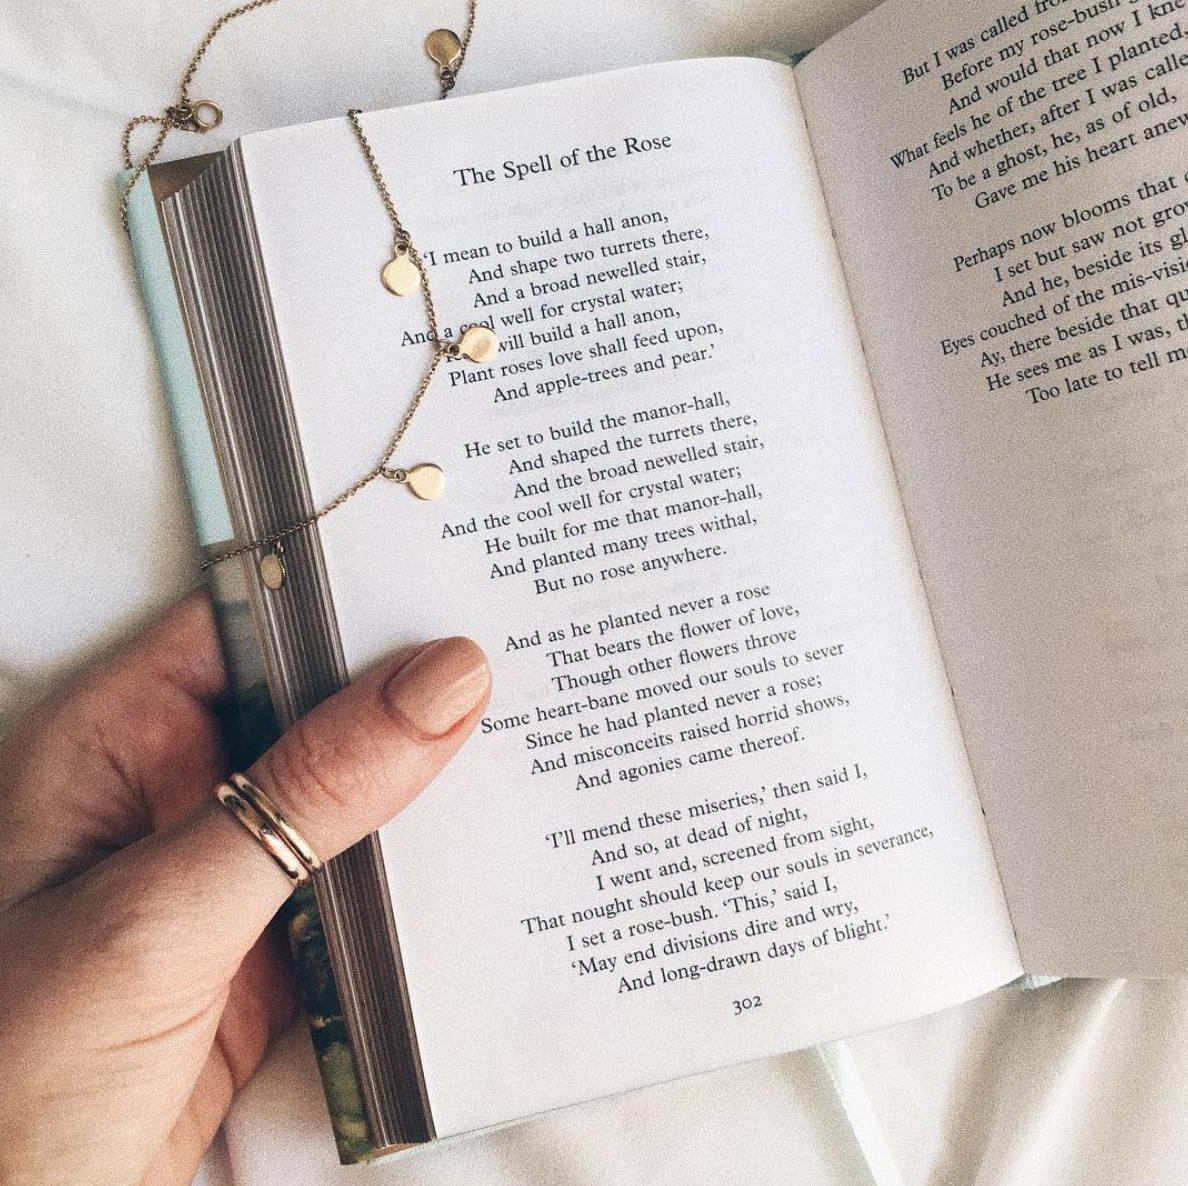 The Spell of the Rose
‘I mean to build a hall anon,
And shape two turrets there,
And a broad newelled stair,
And a cool well for crystal water;
will build a hall anon,
Plant roses love shall feed upon,
And apple-trees and pear.’
He set to build the manor-hall,
And shaped the turrets there,
And the broad newelled stair,
And the cool well for crystal water;
He built for me that manor-hall,
And planted many trees withal,
But no rose anywhere.
And as he planted never a rose
That bears the flower of love,
Though other flowers throve
Some heart-bane moved our souls to sever
Since he had planted never a rose;
And misconceits raised horrid shows,
And agonies came thereof.
‘I’ll mend these miseries,’ then said I,
And so, at dead of night,
I went and, screened from sight,
That nought should keep our souls in severance,
I set a rose-bush. ‘This,’ said I,
‘May end divisions dire and wry,
And long-drawn days of blight.’
302
But I was called
Before my rose-bush
And would that now I
What feels he of the tree I planted,
And whether, after I was
To be a ghost, he, as of old,
Gave me his heart
Perhaps now blooms that
I set but saw not
And he, beside its
Eyes couched of the
Ay, there beside that
He sees me as I was,
Too late to tell